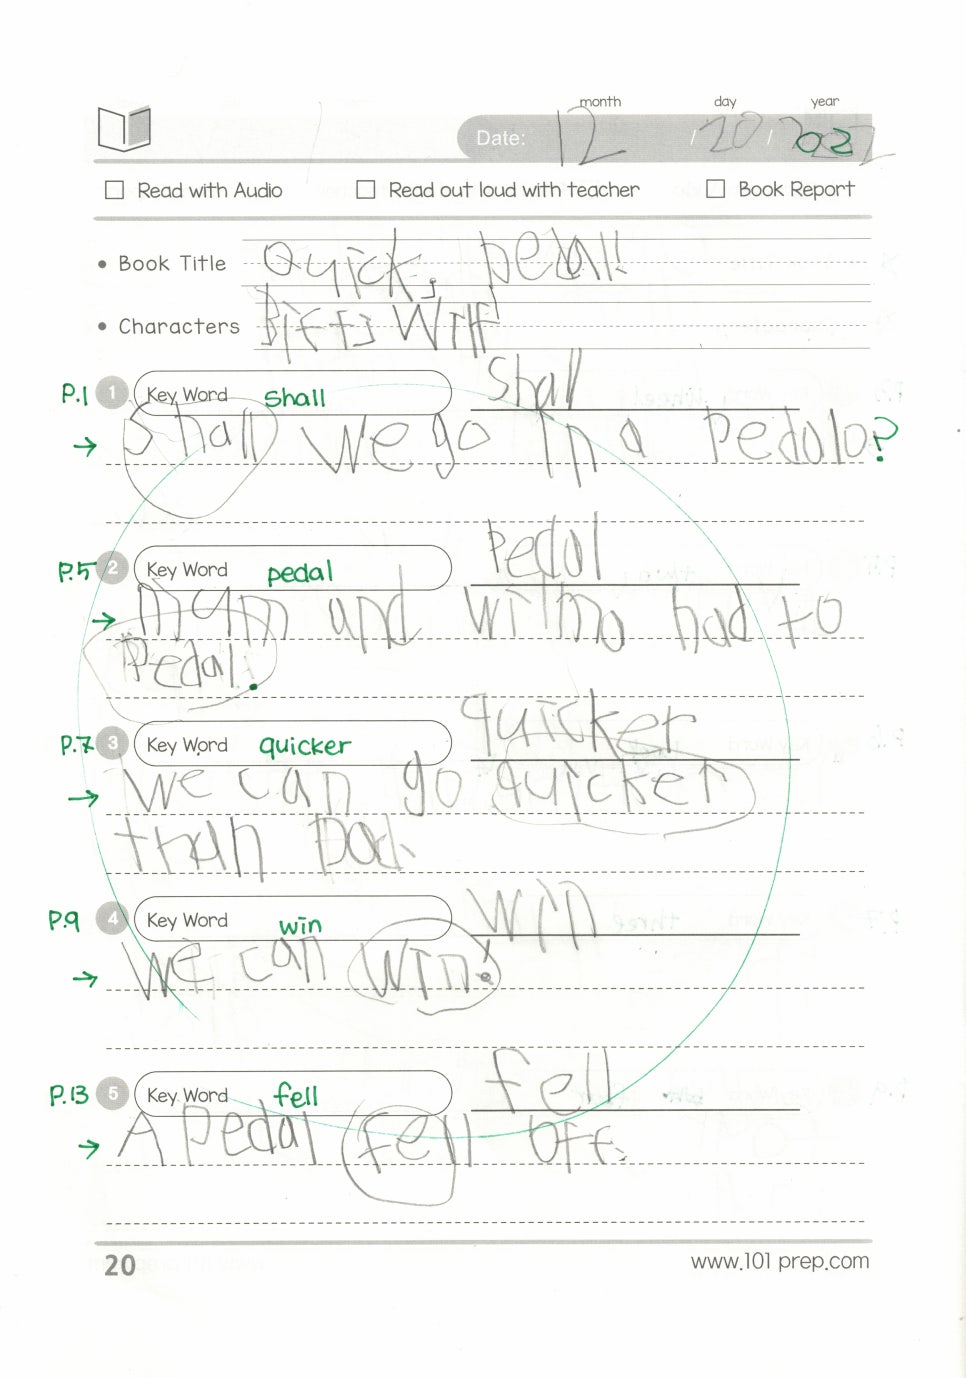 month day year
Date: 12 / 20 / 2022
Read with Audio Read out loud with teacher Book Report
• Book Title Quick, pedal!
• Characters
P.1 1 Key Word shall Shall
→ Shall We go in a Pedalo?
P.5 2 Key Word pedal Pedal
→ mum and wilma had to
Pedal.
P.7 3 Key Word quicker quicker
→ We can go quicker
than Dad.
P.9 4 Key Word win win
→ We can win!
P.13 5 Key Word fell fell
→ A Pedal fell off.
20 www.101prep.com